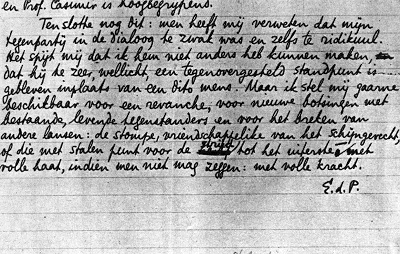 en Prof. Casimir is hoogbegrijpend.
Ten slotte nog dit: men heeft mij verweten dat mijn
tegenpartij in de dialoog te zwak was en zelfs te ridikuul.
Het spijt mij dat ik hem niet anders heb kunnen maken,
dat hij de zee, wellicht, een tegenovergesteld standpunt is
gebleven inplaats van een dito mens. Maar ik stel mij gaarne
beschikbaar voor een revanche, voor nieuwe botsingen met
bestaande, levende tegenstanders en voor het breken van
andere lansen: de stompe, vriendschappelike van het schijngevecht,
of die met stalen punt voor de strijd tot het uiterste met
volle haat, indien men niet mag zeggen: met volle kracht.
E. d. P.